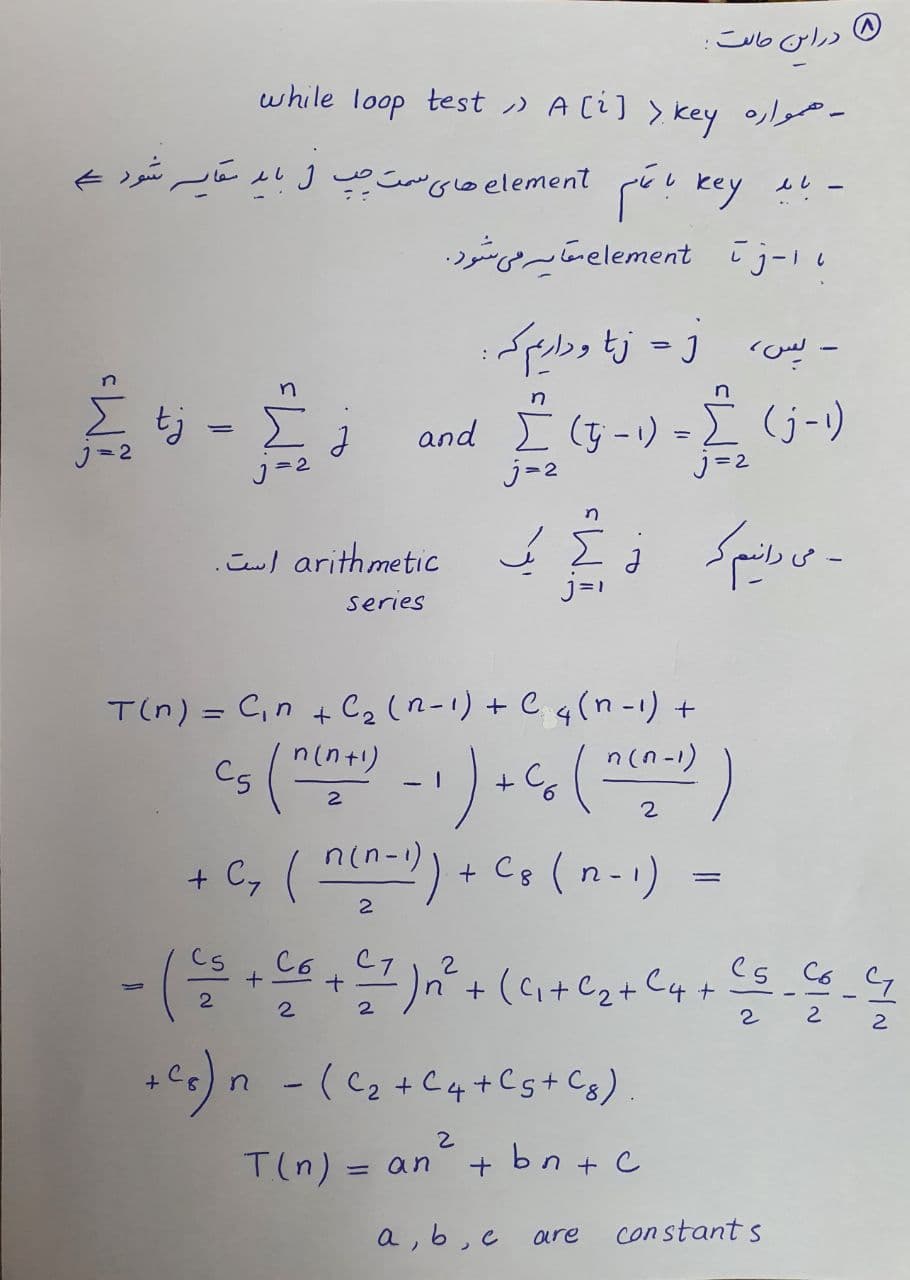 ⑧ در این حالت :
- همواره A[i] > key در while loop test
- باید key با تمام element های سمت چپ j باید مقایسه شود ⇐
با j-1 تا element مقایسه می شود.
- پس، tj = j و داریم که :
∑_{j=2}^{n} tj = ∑_{j=2}^{n} j and ∑_{j=2}^{n} (tj - 1) = ∑_{j=2}^{n} (j-1)
- می دانیم که ∑_{j=1}^{n} j یک arithmetic series است.
T(n) = C₁n + C₂(n-1) + C₄(n-1) +
C₅ ( n(n+1)/2 - 1 ) + C₆ ( n(n-1)/2 )
+ C₇ ( n(n-1)/2 ) + C₈ (n-1) =
= ( C₅/2 + C₆/2 + C₇/2 ) n² + (C₁ + C₂ + C₄ + C₅/2 - C₆/2 - C₇/2
+ C₈) n - ( C₂ + C₄ + C₅ + C₈ ) .
T(n) = an² + bn + c
a , b , c are constants